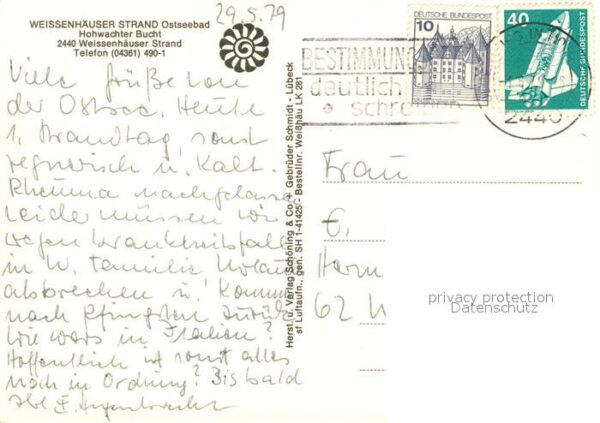 29.5.79
WEISSENHÄUSER STRAND Ostseebad
Hohwachter Bucht
2440 Weissenhäuser Strand
Telefon (04361) 490-1
Viele Grüße von
der Ostsee. Heute
1. Strandtag, sonst
regnerisch u. kalt.
Rheuma nachgelassen
Leider müssen wir
wegen Krankheitsfall
in W. Familie Urlaub
abbrechen u. kommen
nach Pfingsten zurück
Wie wars in Italien?
Hoffentlich ist sonst alles
noch in Ordnung? Bis bald
Ihre F.
Herst. u. Verlag Schöning & Co + Gebrüder Schmidt - Lübeck
sf Luftaufn., gen. SH 1-41425 - Bestellnr. Weißhäu LK 281
BESTIMMUNGS
deutlich
schreiben
10
DEUTSCHE BUNDESPOST
40
DEUTSCHE BUNDESPOST
2440
Frau
E.
Herm
62 W
privacy protection
Datenschutz